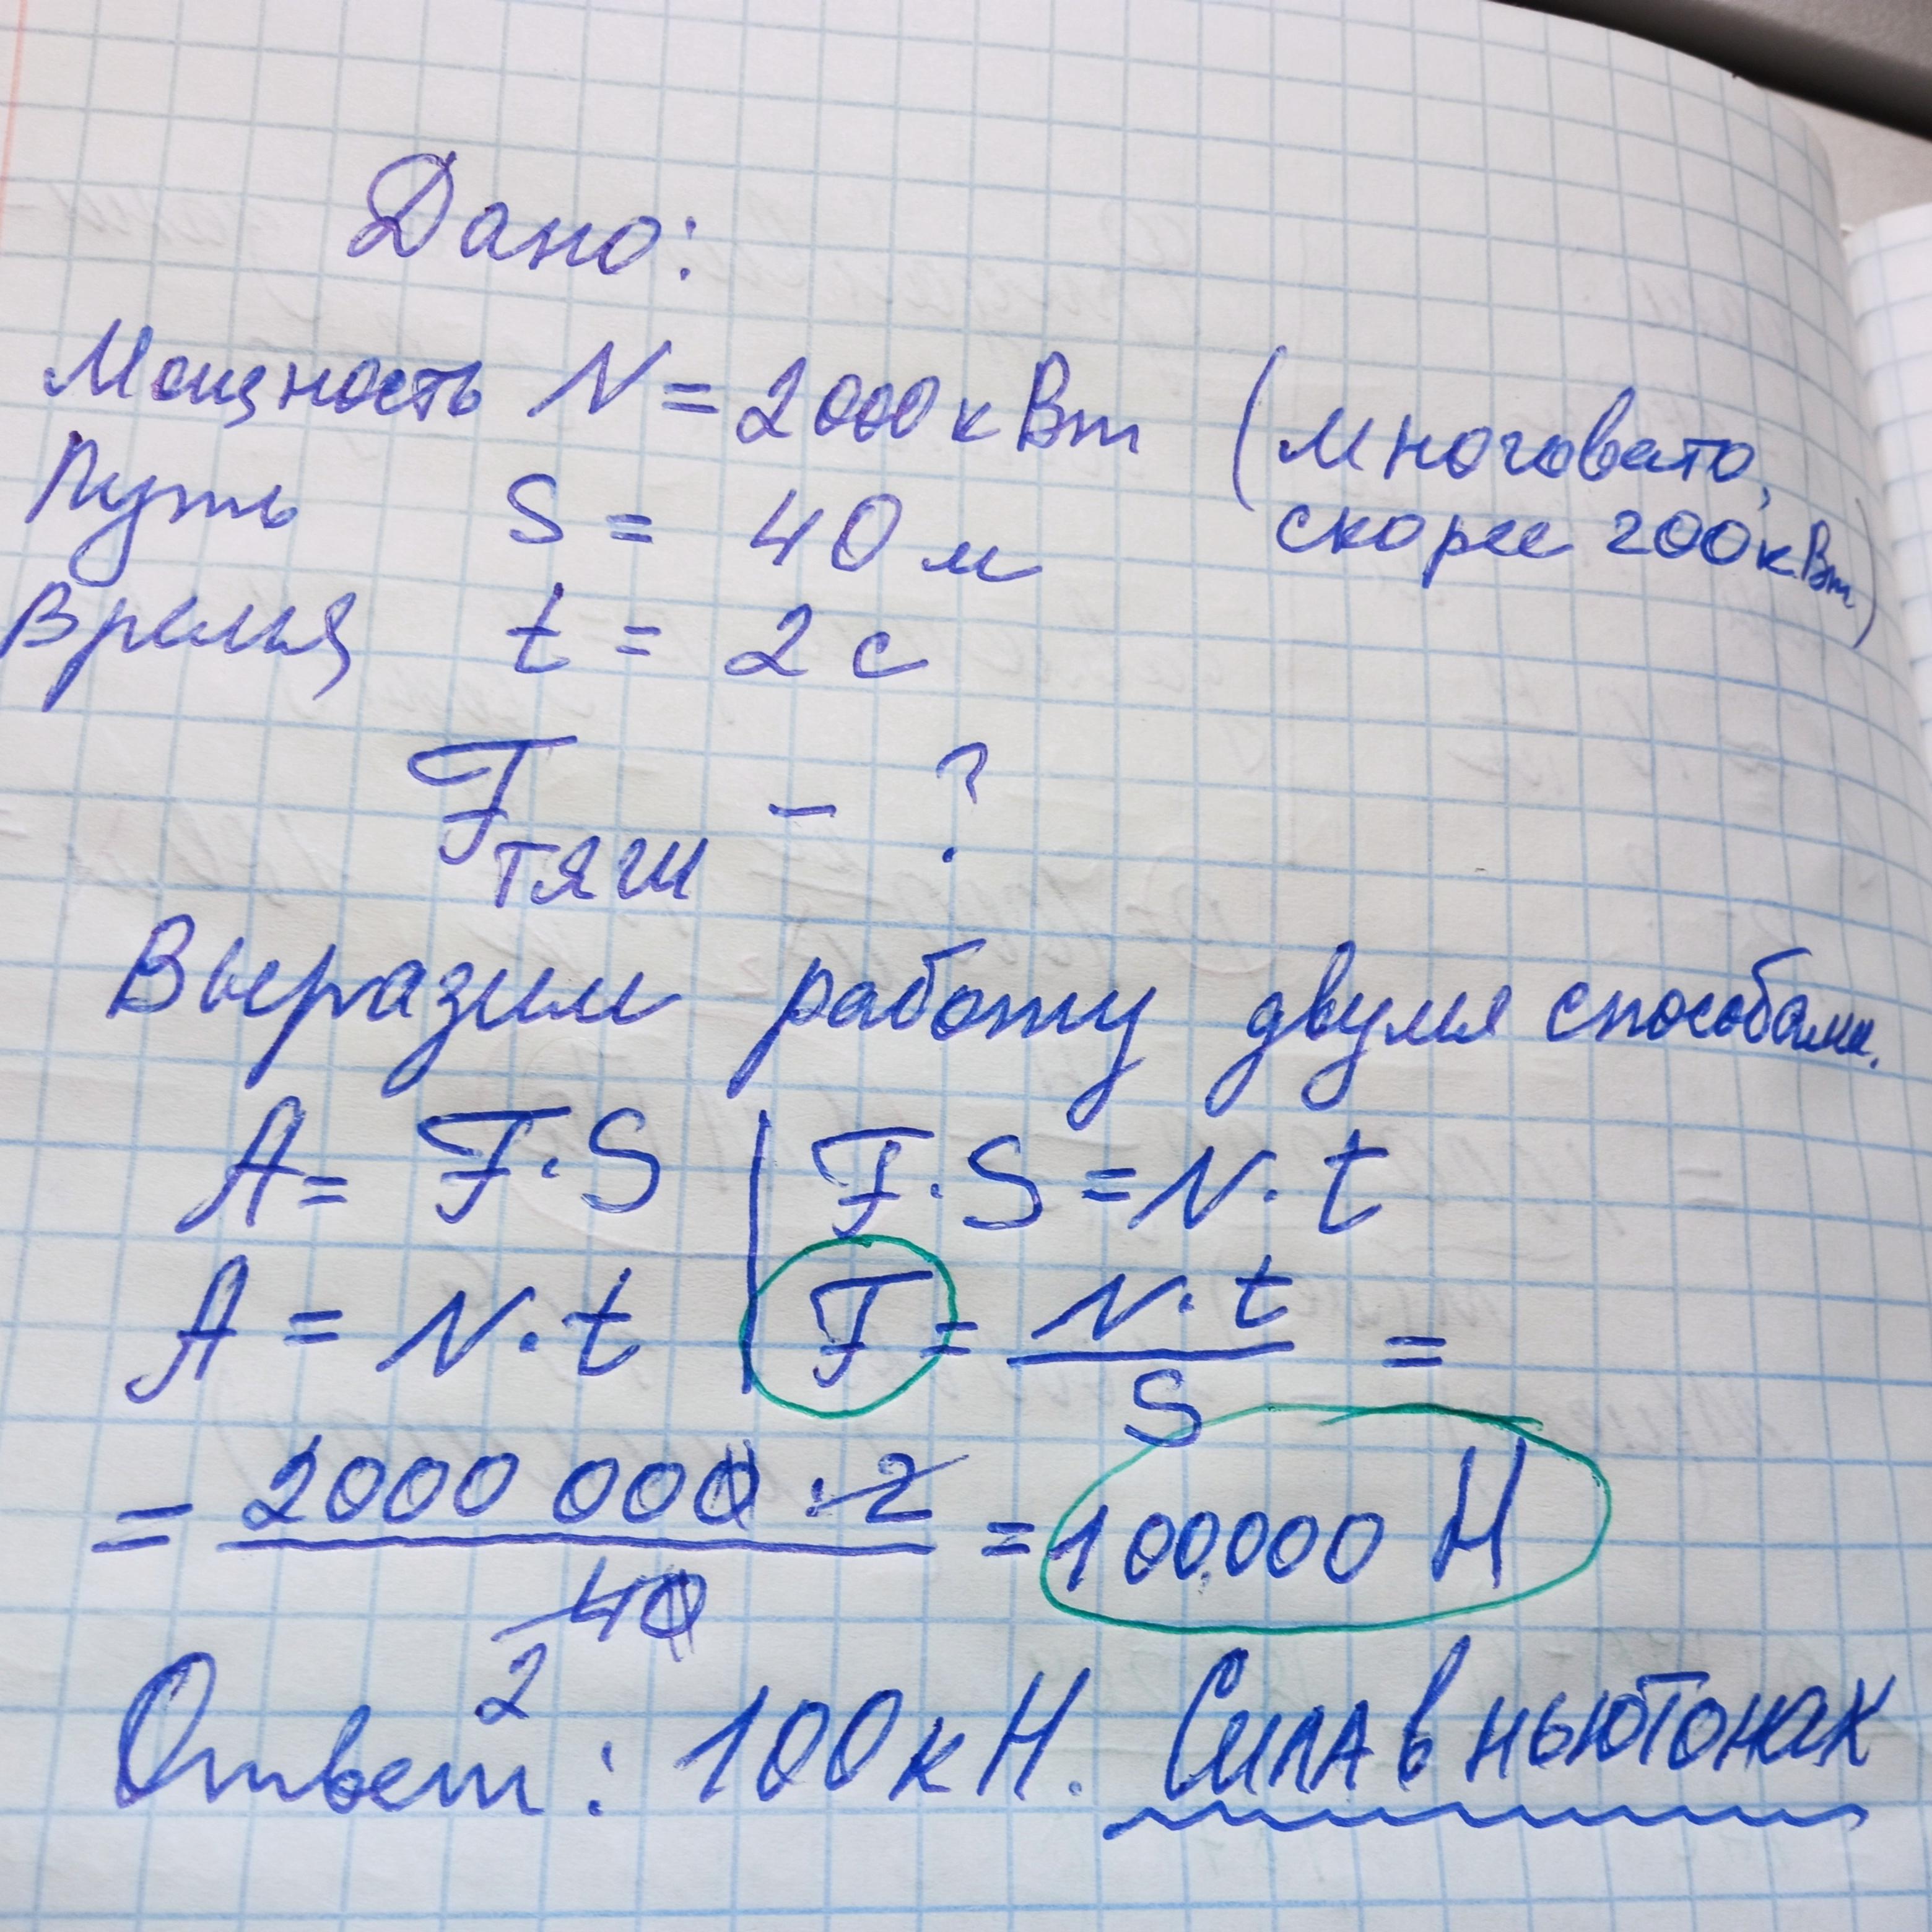 Дано:
Мощность N = 2000 кВт (многовато,
скорее 200кВт)
Путь S = 40 м
Время t = 2 с
Fтяги - ?
Выразим работу двумя способами.
A = F · S | F · S = N · t
A = N · t | F = N · t / S =
= 2000 000 · 2 / 40 = 100.000 Н
2
Ответ: 100 кН. Сила в ньютонах